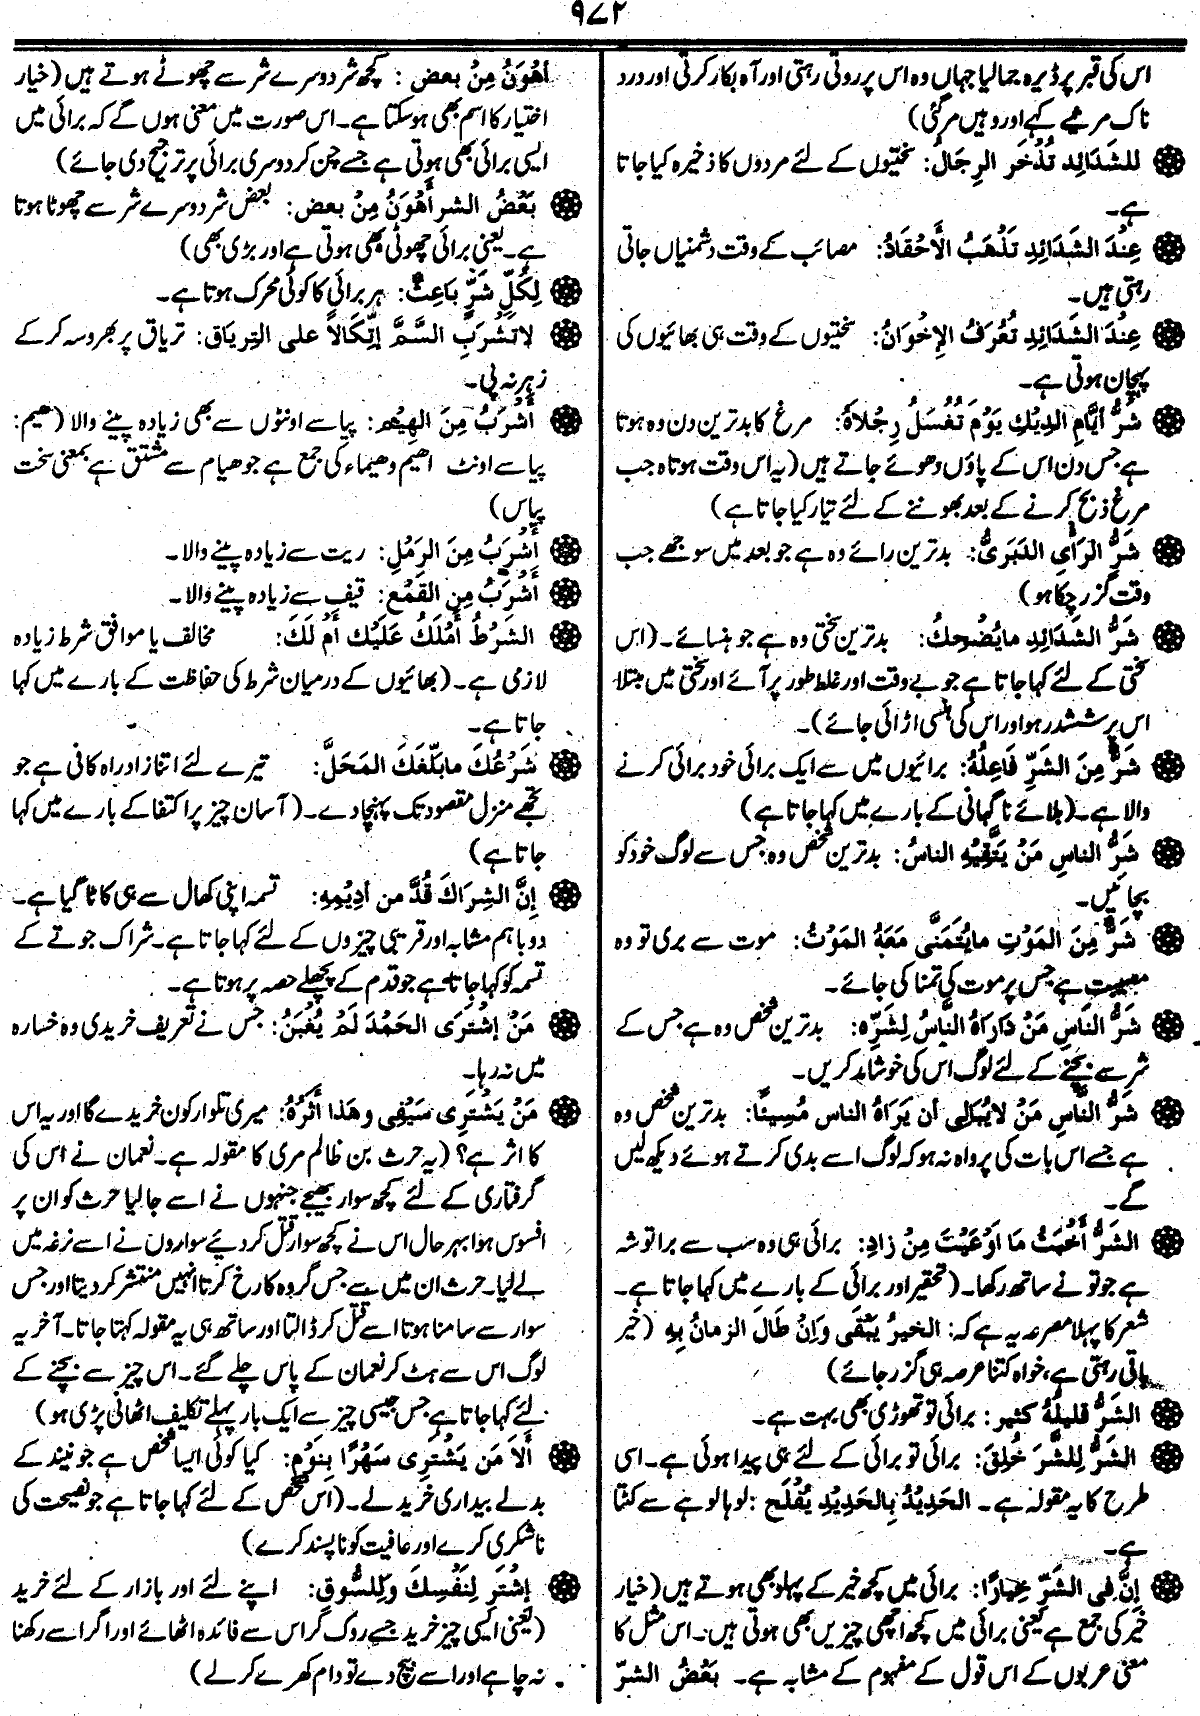 ۹۷۲
اس کی قبر پر ڈیرہ جمالیا جہاں وہ اس پر روتی رہتی اور آہ بکار کرتی اور درد
ناک مرثیے کہے اور وہیں مرگئی)
للشَدَائِد تُذْخَر الرِجَالُ: سختیوں کے لئے مردوں کا ذخیرہ کیا جاتا
ہے۔
عِنْدَ الشَدَائِدِ تَذْهَبُ الأَحْقَادُ: مصائب کے وقت دشمنیاں جاتی
رہتی ہیں۔
عِنْدَ الشَدَائِدِ تُعْرَفُ الإِخْوَانُ: سختیوں کے وقت ہی بھائیوں کی
پہچان ہوتی ہے۔
شَرُّ أَيَّامِ الدِيْكِ يَوْمَ تُغْسَلُ رِجْلَاهُ: مرغ کا بدترین دن وہ ہوتا
ہے جس دن اس کے پاؤں دھوئے جاتے ہیں (یہ اس وقت ہوتاہ جب
مرغ ذبح کرنے کے بعد بھوننے کے لئے تیار کیا جاتا ہے)
شَرُّ الرَأيِ الدَبَرِىُّ: بدترین رائے وہ ہے جو بعد میں سوجھے جب
وقت گزر چکا ہو)
شَرُّ الشَدَائِدِ مايُضْحِكُ: بدترین سختی وہ ہے جو ہنسائے۔ (اس
سختی کے لئے کہا جاتا ہے جو بے وقت اور غلط طور پر آئے اور سختی میں مبتلا
اس پر ششدر ہو اور اس کی ہنسی اڑائی جائے)۔
شَرٌّ مِنَ الشَرِّ فَاعِلُهُ: برائیوں میں سے ایک برائی خود برائی کرنے
والا ہے۔ (بلائے ناگہانی کے بارے میں کہا جاتا ہے)
شَرُّ الناسِ مَنْ يَتَّقِيْهِ الناسُ: بدترین شخص وہ جس سے لوگ خود کو
بچائیں۔
شَرٌّ مِنَ المَوْتِ مايُتَمَنَّى مَعَهُ المَوْتُ: موت سے بری تو وہ
مصیبت ہے جس پر موت کی تمنا کی جائے۔
شَرُّ النَاسِ مَنْ دَارَاهُ النَّاسُ لِشَرِّهِ: بدترین شخص وہ ہے جس کے
شر سے بچنے کے لئے لوگ اس کی خوشامد کریں۔
شَرُّ النَّاسِ مَنْ لايُبَالِى أن يَرَاهُ الناس مُسِيئًا: بدترین شخص وہ
ہے جسے اس بات کی پرواہ نہ ہو کہ لوگ اسے بدی کرتے ہوئے دیکھ لیں
گے۔
الشَرُّ أَخْبَثُ مَا أَوْعَيْتَ مِنْ زَادِ: برائی ہی وہ سب سے برا توشہ
ہے جو تو نے ساتھ رکھا۔ (تحقیر اور برائی کے بارے میں کہا جاتا ہے۔
شعر کا پہلا مصرعہ یہ ہے کہ: الخيرُ يَبْقَى وَإِنْ طَالَ الزمانُ بِهِ (خیر
باقی رہتی ہے، خواہ کتنا عرصہ ہی گزر جائے)
الشَرُّ قليلُهُ كثير: برائی تو تھوڑی بھی بہت ہے۔
الشَرُّ لِلشَّرَ خُلِقَ: برائی تو برائی کے لئے ہی پیدا ہوئی ہے۔ اسی
طرح کا یہ مقولہ ہے۔ الحَدِيْدُ بِالحَدِيْدِ يُفْلَح: لوہا لوہے سے کٹتا
ہے۔
إِنَّ فِى الشَرِّ خِيارًا: برائی میں کچھ خیر کے پہلو بھی ہوتے ہیں (خیار
خیر کی جمع ہے یعنی برائی میں کچھ اچھی چیزیں بھی ہوتی ہیں۔ اس مثل کا
معنی عربوں کے اس قول کے مفہوم کے مشابہ ہے۔ بَعْضُ الشرّ
أَهْوَنُ مِنْ بعض: کچھ شر دوسرے شر سے چھوٹے ہوتے ہیں (خیار
اختیار کا اسم بھی ہو سکتا ہے۔ اس صورت میں معنی ہوں گے کہ برائی میں
ایسی برائی بھی ہوتی ہے جسے چن کر دوسری برائی پر ترجیح دی جائے)
بَعْضُ الشر أَهْوَنُ مِنْ بعض: بعض شر دوسرے شر سے چھوٹا ہوتا
ہے۔ یعنی برائی چھوٹی بھی ہوتی ہے اور بڑی بھی)
لِكُلِّ شَرٍّ بَاعِثٌ: ہر برائی کا کوئی محرک ہوتا ہے۔
لاتَشْرَبِ السَّمَّ إِتِّكَالاً على التِرياق: تریاق پر بھروسہ کر کے
زہر نہ پی۔
أَشْرَبُ مِنَ الهِيْم: پیاسے اونٹوں سے بھی زیادہ پینے والا (ھیم:
پیاسے اونٹ اھیم وھیماء کی جمع ہے جو ھیام سے مشتق ہے بمعنی سخت
پیاس)
أَشْرَبُ مِنَ الرَمْلِ: ریت سے زیادہ پینے والا۔
أَشْرَبُ مِنِ القِمْعِ: قیف سے زیادہ پینے والا۔
الشَرْطُ أَمْلَكُ عَلَيْكَ أَمْ لَكَ: مخالف یا موافق شرط زیادہ
لازمی ہے۔ (بھائیوں کے درمیان شرط کی حفاظت کے بارے میں کہا
جاتا ہے۔
شَرْعُكَ مابَلَّغَكَ المَحَلَّ: تیرے لئے اتنا زاد راہ کافی ہے جو
تجھے منزل مقصود تک پہنچا دے۔ (آسان چیز پر اکتفا کے بارے میں کہا
جاتا ہے)
إِنَّ الشِرَاكَ قُدَّ من أدِيْمِهِ: تسمہ اپنی کھال سے ہی کاٹا گیا ہے۔
دو باہم مشابہ اور قریبی چیزوں کے لئے کہا جاتا ہے۔ شراک جوتے کے
تسمہ کو کہا جاتا ہے جو قدم کے پچھلے حصہ پر ہوتا ہے۔
مَنْ إشْتَرَى الحَمْدَ لَمْ يُغْبَنْ: جس نے تعریف خریدی وہ خسارہ
میں نہ رہا۔
مَنْ يَشْتَرِى سَيْفِى وهَذا أَثَرُهُ: میری تلوار کون خریدے گا اور یہ اس
کا اثر ہے؟ (یہ حرث بن ظالم مری کا مقولہ ہے۔ نعمان نے اس کی
گرفتاری کے لئے کچھ سوار بھیجے جنہوں نے اسے جالیا حرث کو ان پر
افسوس ہوا بہرحال اس نے کچھ سوار قتل کر دیئے سواروں نے اسے نرغہ میں
لے لیا۔ حرث ان میں سے جس گروہ کا رخ کرتا انہیں منتشر کر دیتا اور جس
سوار سے سامنا ہوتا اسے قتل کر ڈالتا اور ساتھ ہی یہ مقولہ کہتا جاتا۔ آخر یہ
لوگ اس سے ہٹ کر نعمان کے پاس چلے گئے۔ اس چیز سے بچنے کے
لئے کہا جاتا ہے جس جیسی چیز سے ایک بار پہلے تکلیف اٹھانی پڑی ہو)
أَلاَ مَن يَشْتَرِى سَهْرًا بِنَوْمٍ: کیا کوئی ایسا شخص ہے جو نیند کے
بدلے بیداری خرید لے۔ (اس شخص کے لئے کہا جاتا ہے جو نصیحت کی
ناشکری کرے اور عافیت کو ناپسند کرے)
إشْتَرِ لِنَفْسِكَ وَلِلسُّوقِ: اپنے لئے اور بازار کے لئے خرید
(یعنی ایسی چیز خرید جسے روک کر اس سے فائدہ اٹھائے اور اگر اسے رکھنا
نہ چاہے اور اسے بیچ دے تو دام کھرے کر لے)